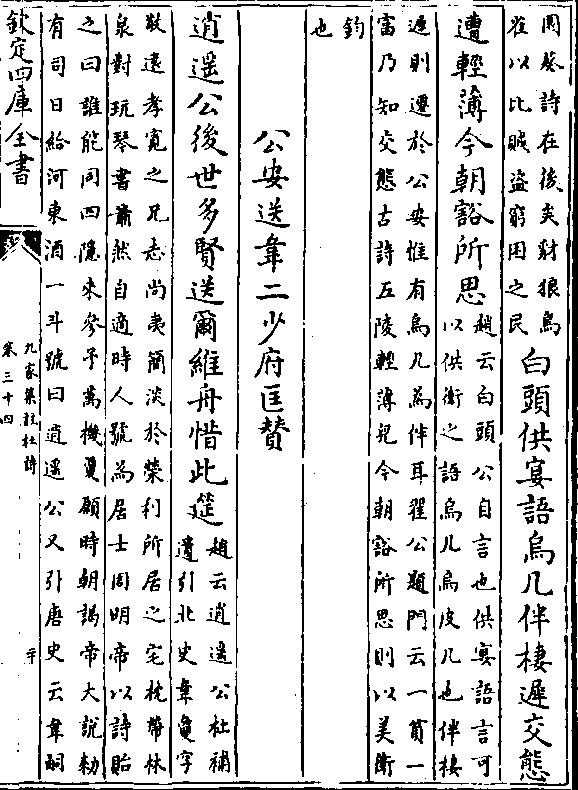 園葵詩在後矣豺狼鳥
雀以比賊盜窮困之民
白頭供宴語烏几伴棲遲交態
遭輕薄今朝豁所思
趙云白頭公自言也供宴語言可
以供衛之語烏几烏皮几也伴棲
遲則遷於公安惟有烏几為伴耳翟公題門云一貧一
富乃知交態古詩五陵輕薄兒今朝豁所思則以美衛
鈞
也
公安送韋二少府匡贊
逍遥公後世多賢送爾維舟惜此筵
趙云逍遥公杜補
遺引北史韋敻字
敬逺孝寛之兄志尚夷簡淡於榮利所居之宅枕帶林
泉對玩琴書蕭然自適時人號為居士周明帝以詩貽
之曰誰能同四隱來參予萬機敻願時朝謁帝大說勅
有司日給河東酒一斗號曰逍遥公又引唐史云韋嗣
欽定四庫全書
九家集注杜詩
卷三十四